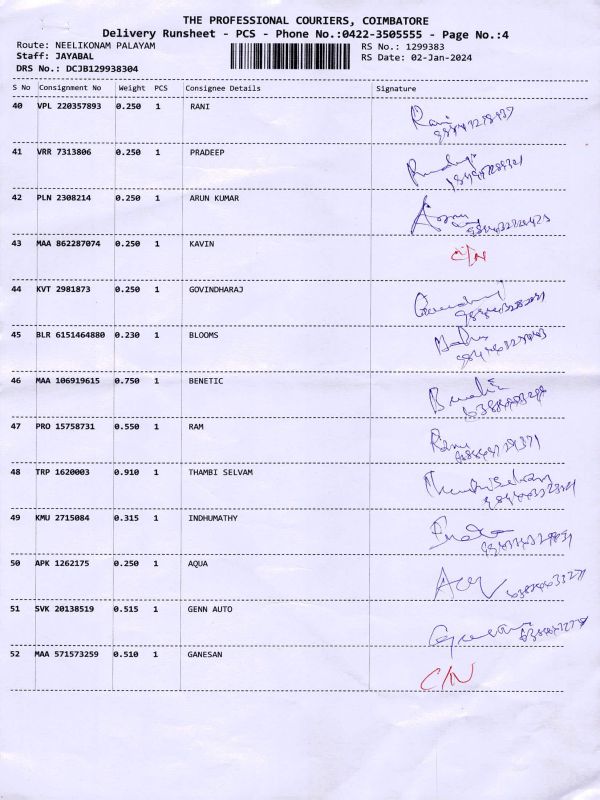 THE PROFESSIONAL COURIERS, COIMBATORE
Delivery Runsheet - PCS - Phone No.:0422-3505555 - Page No.:4
Route: NEELIKONAM PALAYAM RS No.: 1299383
Staff: JAYABAL RS Date: 02-Jan-2024
DRS No.: DCJB129938304
S No Consignment No Weight PCS Consignee Details Signature
40 VPL 220357893 0.250 1 RANI Rani
41 VRR 7313806 0.250 1 PRADEEP
42 PLN 2308214 0.250 1 ARUN KUMAR
43 MAA 862287074 0.250 1 KAVIN C/N
44 KVT 2981873 0.250 1 GOVINDHARAJ
45 BLR 6151464880 0.230 1 BLOOMS
46 MAA 106919615 0.750 1 BENETIC
47 PRO 15758731 0.550 1 RAM
48 TRP 1620003 0.910 1 THAMBI SELVAM
49 KMU 2715084 0.315 1 INDHUMATHY
50 APK 1262175 0.250 1 AQUA
51 SVK 20138519 0.515 1 GENN AUTO
52 MAA 571573259 0.510 1 GANESAN C/N